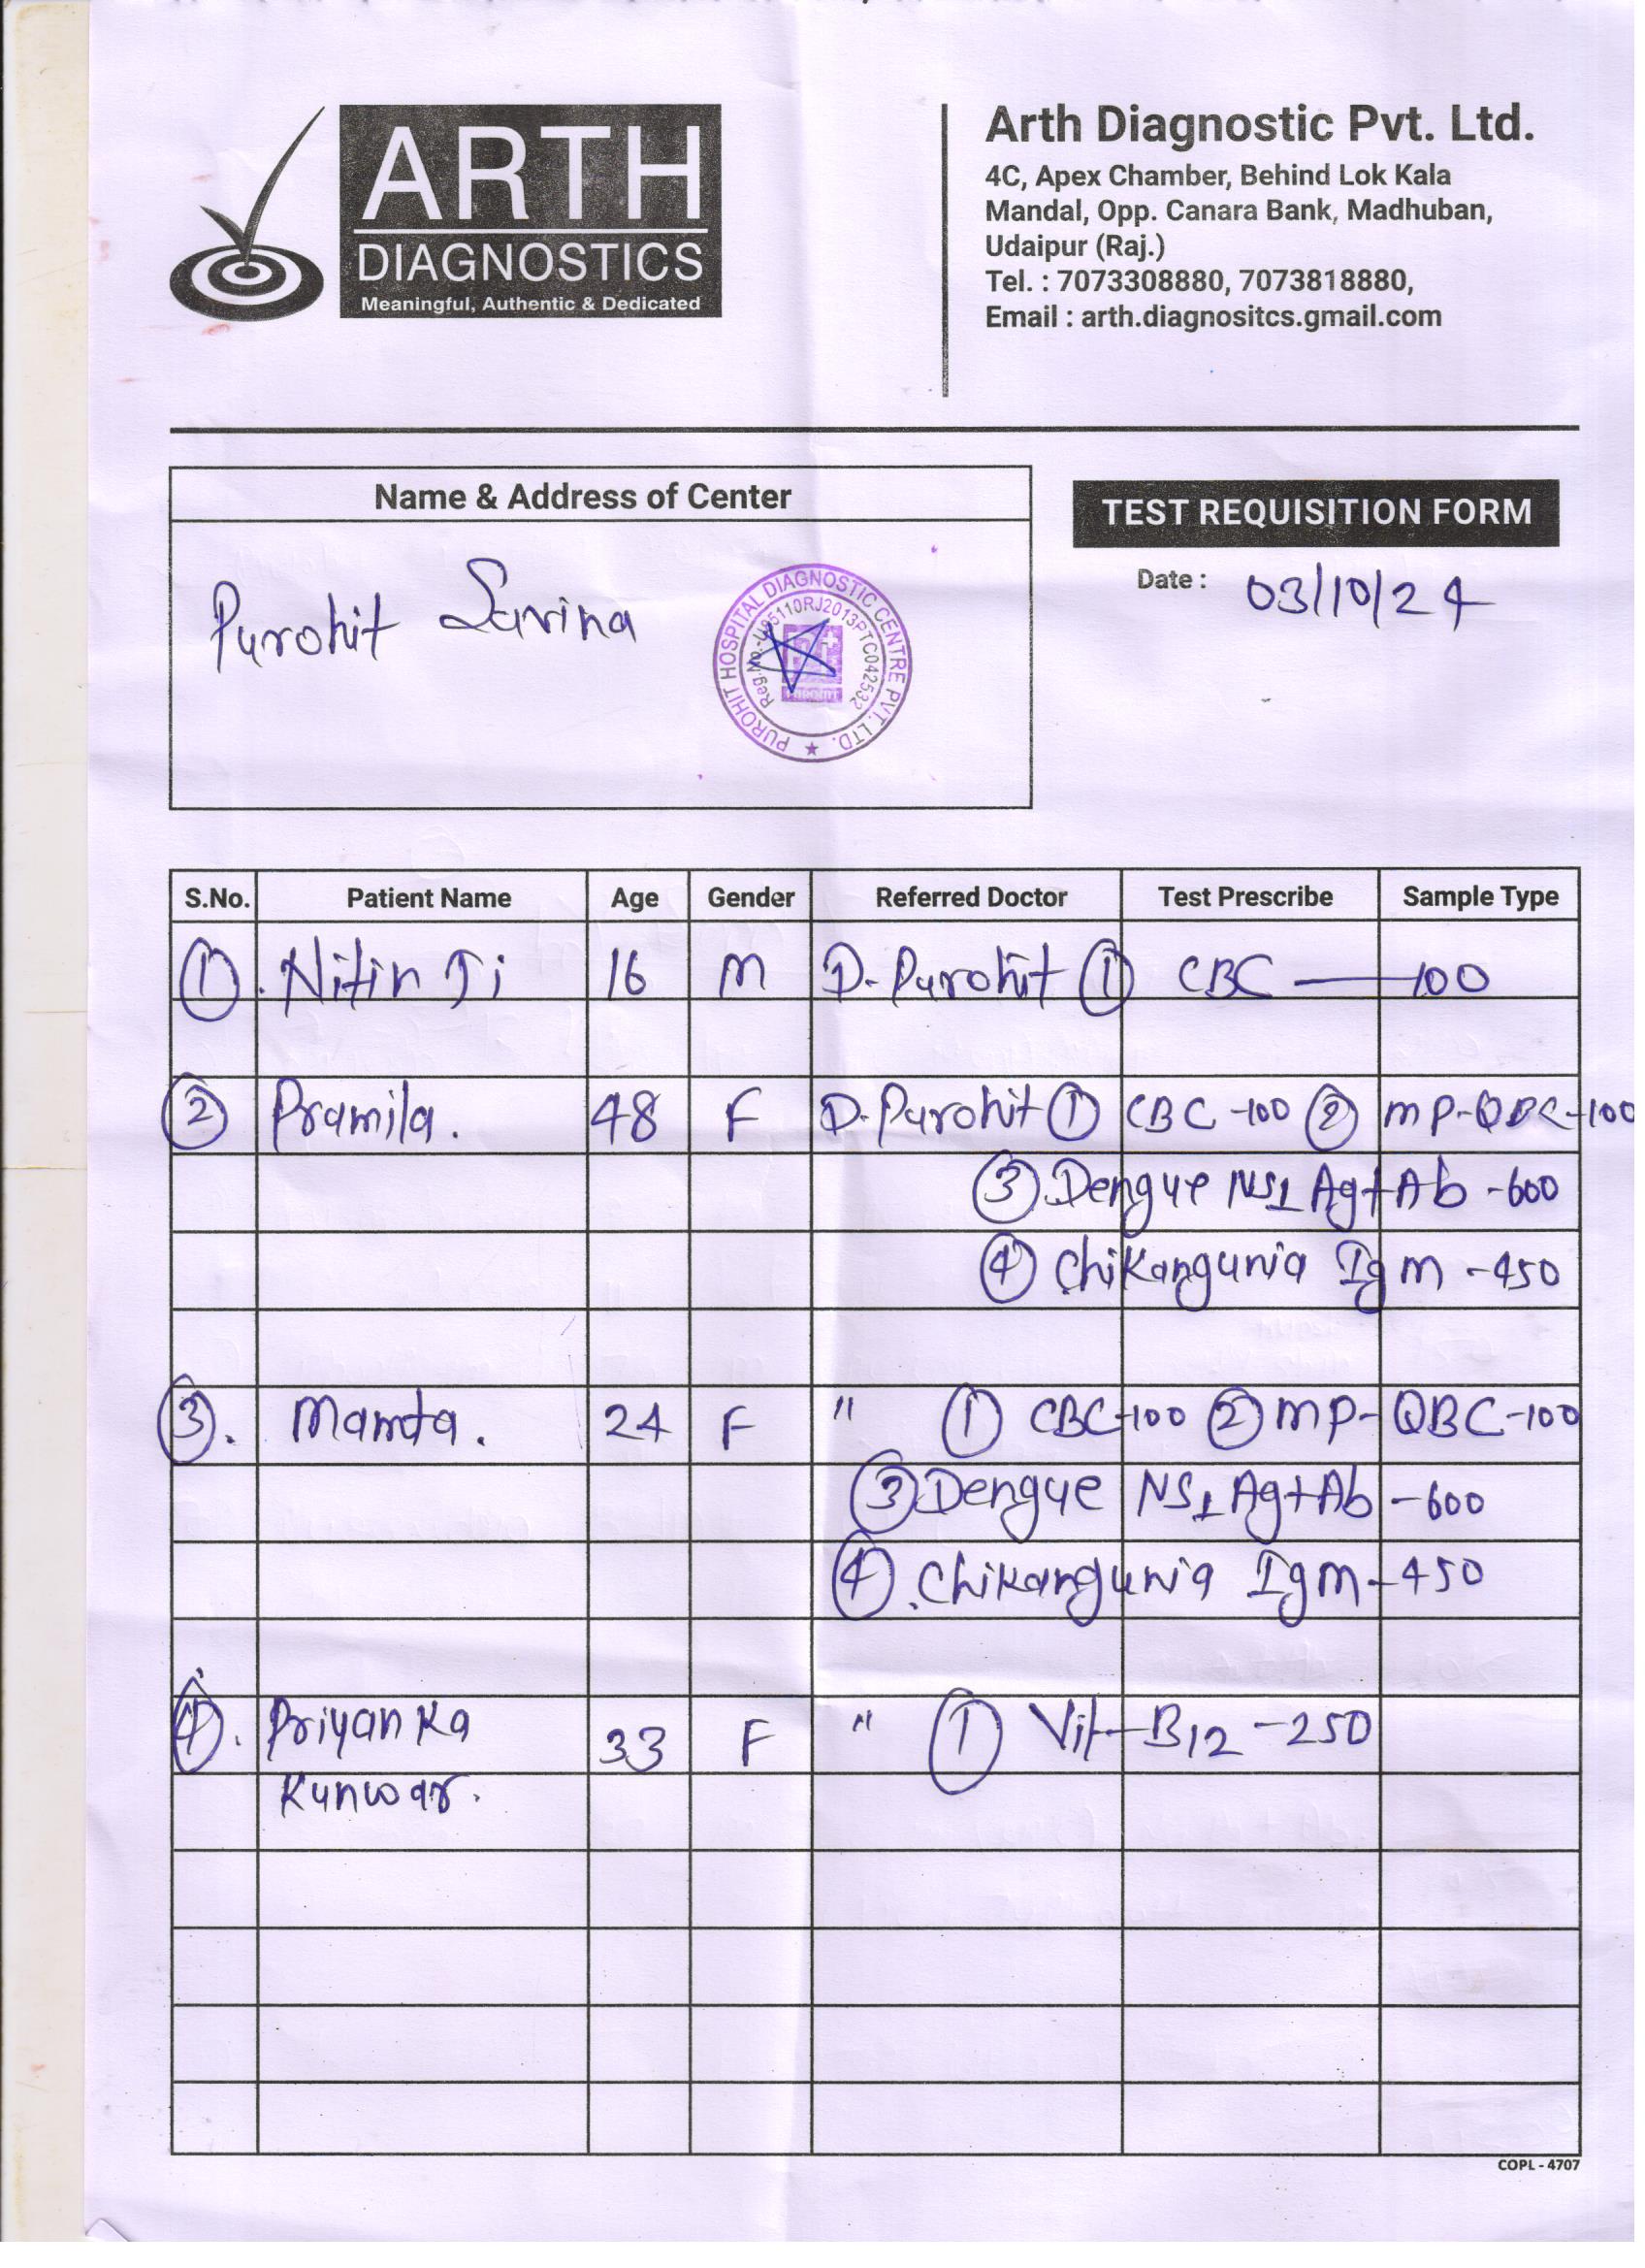 ARTH
DIAGNOSTICS
Meaningful, Authentic & Dedicated
Arth Diagnostic Pvt. Ltd.
4C, Apex Chamber, Behind Lok Kala
Mandal, Opp. Canara Bank, Madhuban,
Udaipur (Raj.)
Tel. : 7073308880, 7073818880,
Email : arth.diagnositcs.gmail.com
Name & Address of Center
TEST REQUISITION FORM
Date : 03/10/24
Purohit Savina
PUROHIT HOSPITAL DIAGNOSTIC CENTRE PVT. LTD. ★
S.No. Patient Name Age Gender Referred Doctor Test Prescribe Sample Type
① . Nitin Ji 16 M D. Purohit ① CBC — 100
② Pramila . 48 F D. Purohit ① CBC -100 ② MP-QBC-100
③ Dengue NS1 Ag+Ab - 600
④ Chikangunia IgM - 450
③ . Mamta . 24 F " ① CBC-100 ② MP- QBC-100
③ Dengue NS1 Ag+Ab - 600
④ . Chikangunia IgM - 450
④ . Priyanka 33 F " ① Vit-B12 - 250
Kunwar .
COPL - 4707